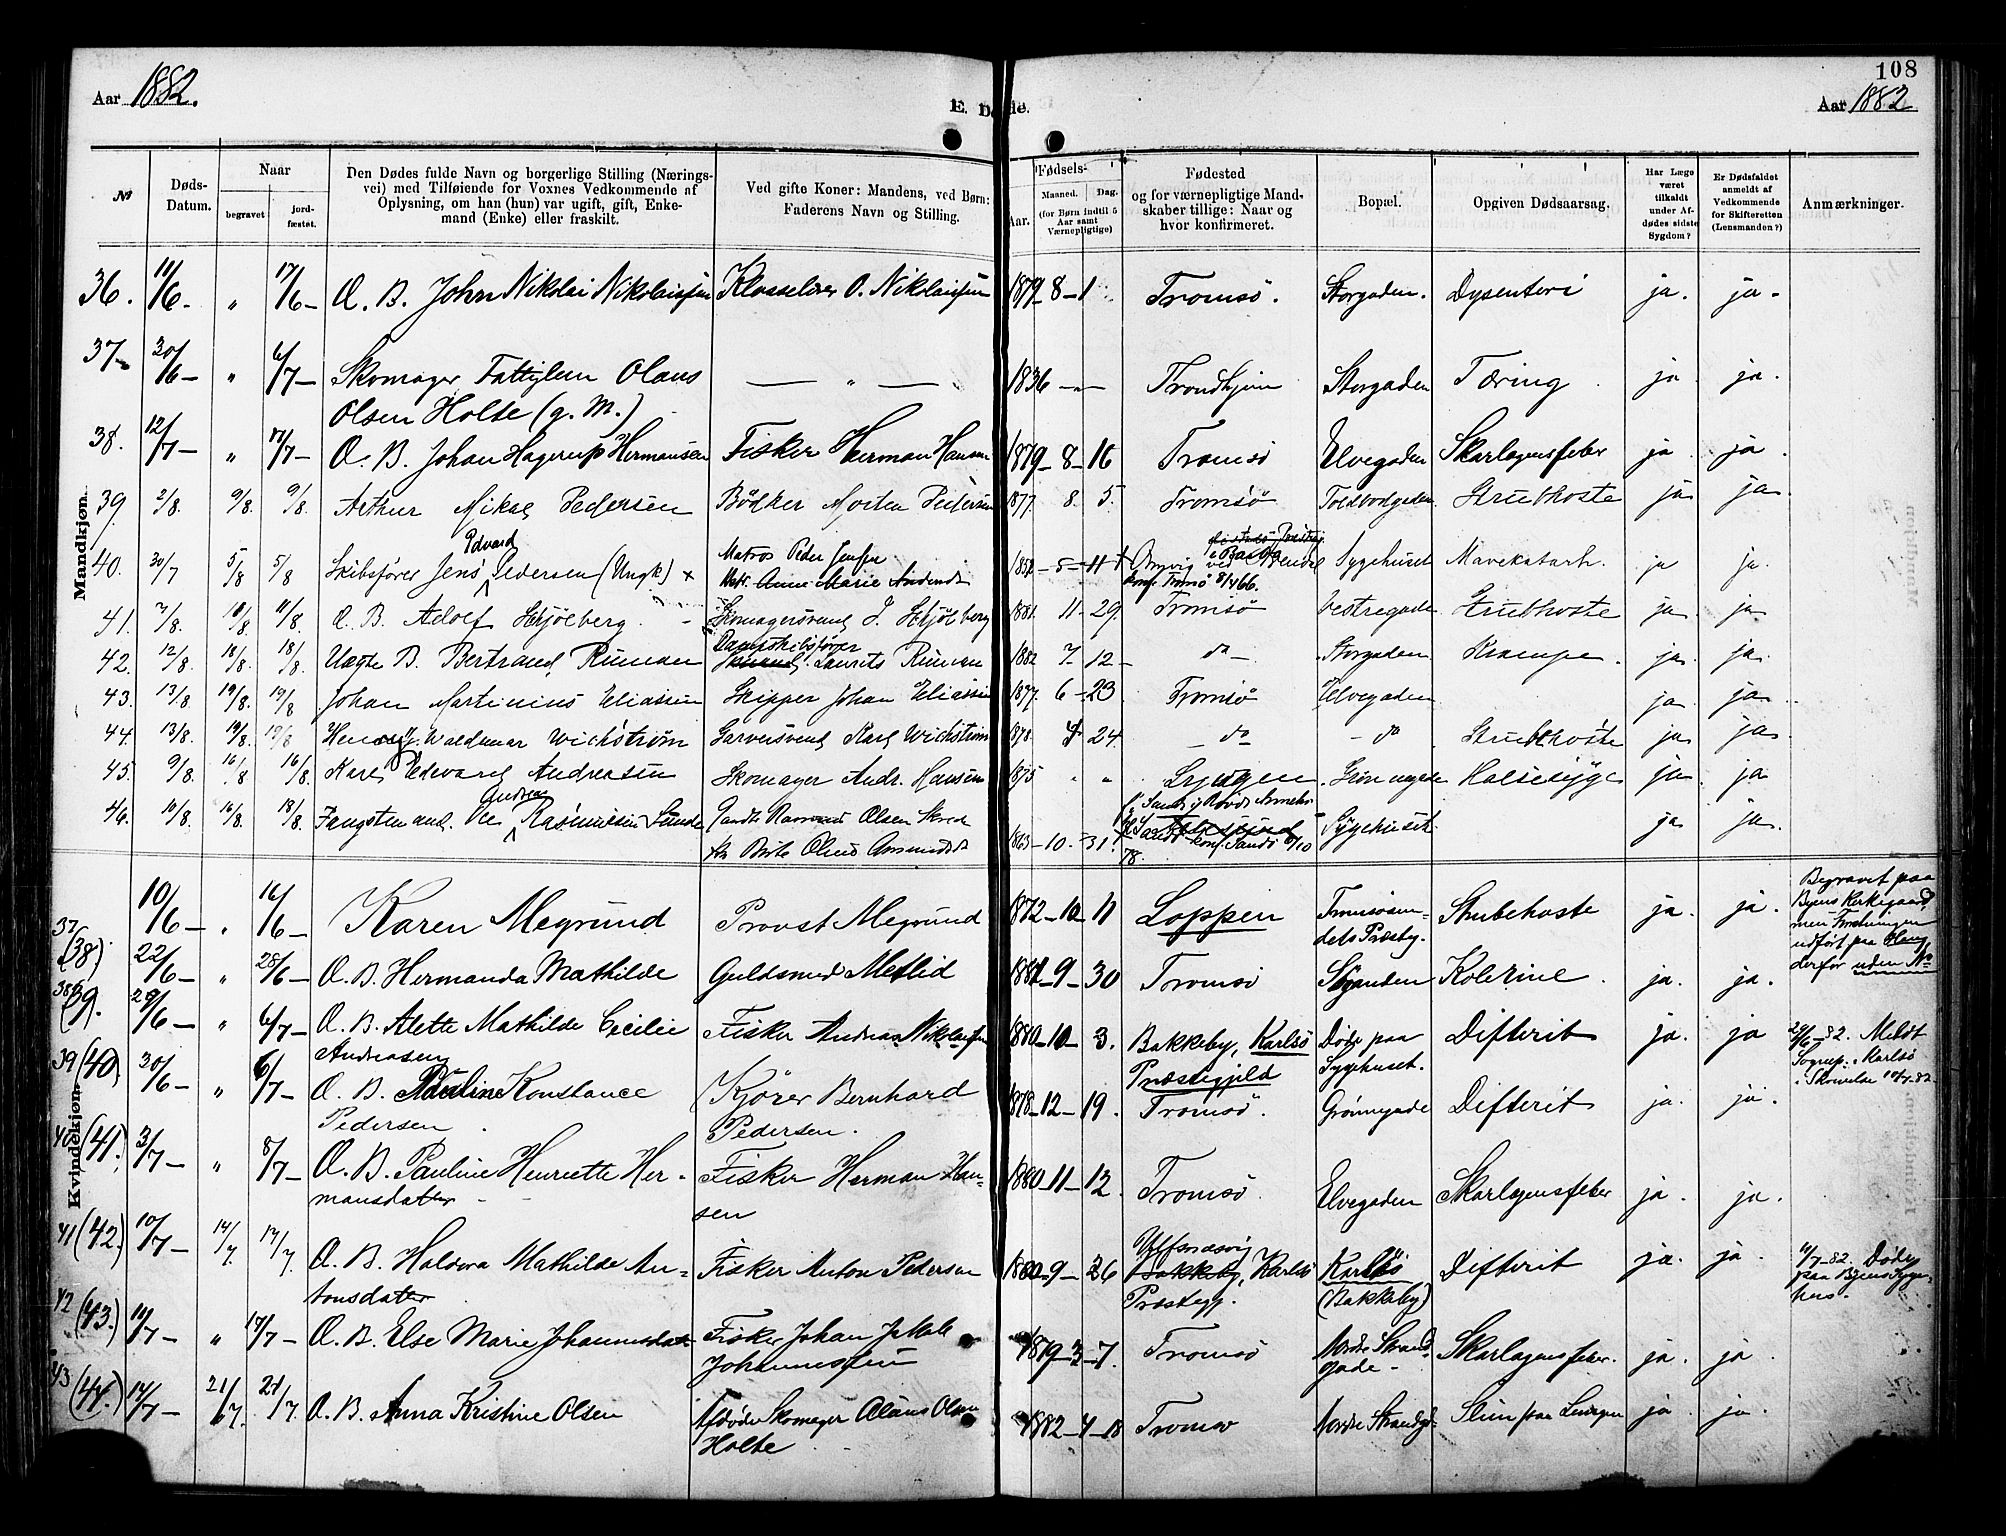 108
Aar 1882.
E. Døde.
Aar 1882
№
Døds-Datum.
Naar
begravet
jordfæstet.
Den Dødes fulde Navn og borgerlige Stilling (Nærings-
vei) med Tilføiende for Voxnes Vedkommende af
Oplysning, om han (hun) var ugift, gift, Enke-
mand (Enke) eller fraskilt.
Ved gifte Koner: Mandens, ved Børn:
Faderens Navn og Stilling.
Fødsels-
Aar.
Maaned.
Dag.
(for Børn indtil 5
Aar samt
Værnepligtige)
Fødested
og for værnepligtige Mand-
skaber tillige: Naar og
hvor konfirmeret.
Bopæl.
Opgiven Dødsaarsag.
Har Læge
været
tilkaldt
under Af-
dødes sidste
Sygdom?
Er Dødsfaldet
anmeldt af
Vedkommende
for Skifteretten
(Lensmanden?)
Anmærkninger.
Mandkjøn.
36. 11/6- " 17/6- Æ. B. John Nikolai Nikolaissen O. Nikolaissen 1879-8-1 Tromsø. Storgaden. Dysenteri ja. ja.
37- 30/6- " 6/7- Skomager Olaus — " — 1836 - - Trondhjem Storgaden Tæring ja ja.
Olsen Holte (g. M.)
38. 12/7- " 17/7- Æ. B. Johan Hagerup Hermansen Fisker Herman Hansen 1879-8-16 Tromsø Elvegaden Skarlagensfeber ja ja
39. 2/8. 9/8. 9/8. Arthur Mikal Pedersen Bødker Morten Pedersen 1877. 8. 5. Tromsø Toldbodgaden Strubhoste ja ja
Edvard
40. 30/7 5/8 5/8 Skibsfører Jens Pedersen (Ungk) x Matros Peder Jensen -11 Sygehuset Mavekatarh. ja ja.
Anne Marie
konf. Tromsø
41. 7/8. 10/8. 11/8. Æ. B. Adolf Hjølberg. Skomagersvend J. Hjølberg 1881. 11-29. Tromsø Vestregade Strubhoste ja ja
Dampskibsfører
42. 12/8. 18/8. 18/8. Uægte B. Bertrand Ruman Laurits Ruman 1882 7-12- do- Storgaden Krampe. ja ja.
43. 13/8 19/8. 19/8 Johan Martinius Eliassen Skipper Johan Eliassen 1877. 6-23 Tromsø Elvegaden ja ja
44. 13/8. 19/8. 19/8 Waldemar Wichstrøm Garversvend Karl Wichstrøm 1878. 24. - do - do Strubhoste ja ja
45. 9/8. 16/8 16/8. Karl Edvard Andreasen Skomager Andr. Hansen 1875 " " Lyngen Halssyge ja ja
Andreas
46. 10/8. 16/8. 18/8. Fangstmand. Ole Rasmussen Sande Olsen 1863-10-31. Sygehuset. ja ja.
78.
Kvindekjøn.
10/6- " 16/6- Karen Megrund Provst Megrund 1872-10-11 Loppen Tromsøsun- Strubehoste ja. ja. Begravet paa
dets Præstg. Byens Kirkegaard,
men
udført paa
derfor uden No
37 (38) 22/6- " 28/6- Æ. B. Hermanda Mathilde Guldsmed Metlid 1881-9-30 Tromsø Kolerine. ja. ja.
38 (39). 29/6- " 6/7- Æ. B. Alette Mathilde Cecilie Fisker Andreas Nikolaisen 1880-10-3. Bakkeby, Karlsø Døde paa Difterit ja. ja 29/6-82. Meldt
Andreasen Præstegjeld Sygehuset. Sognep. i Karlsø
39 (40). 30/6- " 6/7- Æ. B. Pauline Konstance Kjører Bernhard 1878-12-19. Tromsø. Grønnegade Difterit ja. ja.
Pedersen Pedersen.
40 (41). 3/7- " 8/7- Æ. B. Pauline Henriette Her- Fisker Herman Han- 1880-11-12. Tromsø. Elvegaden Skarlagensfeber ja. ja.
mansdatter sen
41 (42.) 10/7- 14/7. 17/7. Æ. B. Haldora Mathilde An- Fisker Anton Pedersen 1880-9-26 Ulfsnæsvig Bakkeby, Karlsø Karlsø Difterit ja. ja. 11/7-82. Døde
tonsdatter Præstegj. (Bakkeby) paa Byens Syge-
hus.
42 (43.) 11/7- " 17/7- Æ. B. Else Marie Johannesdat. Fisker Johan Jakob 1879-3-7. Tromsø Nordre Strand- Skarlagensfeber. ja ja.
Johannessen gade-
43 (44.) 14/7- 21/7. 21/7. Æ. B. Anna Kristine Olsen Afdøde Skomager Olaus Olsen 1882-4-18 Tromsø Nordre Strandgd. Slim paa Lungen ja ja.
Holte